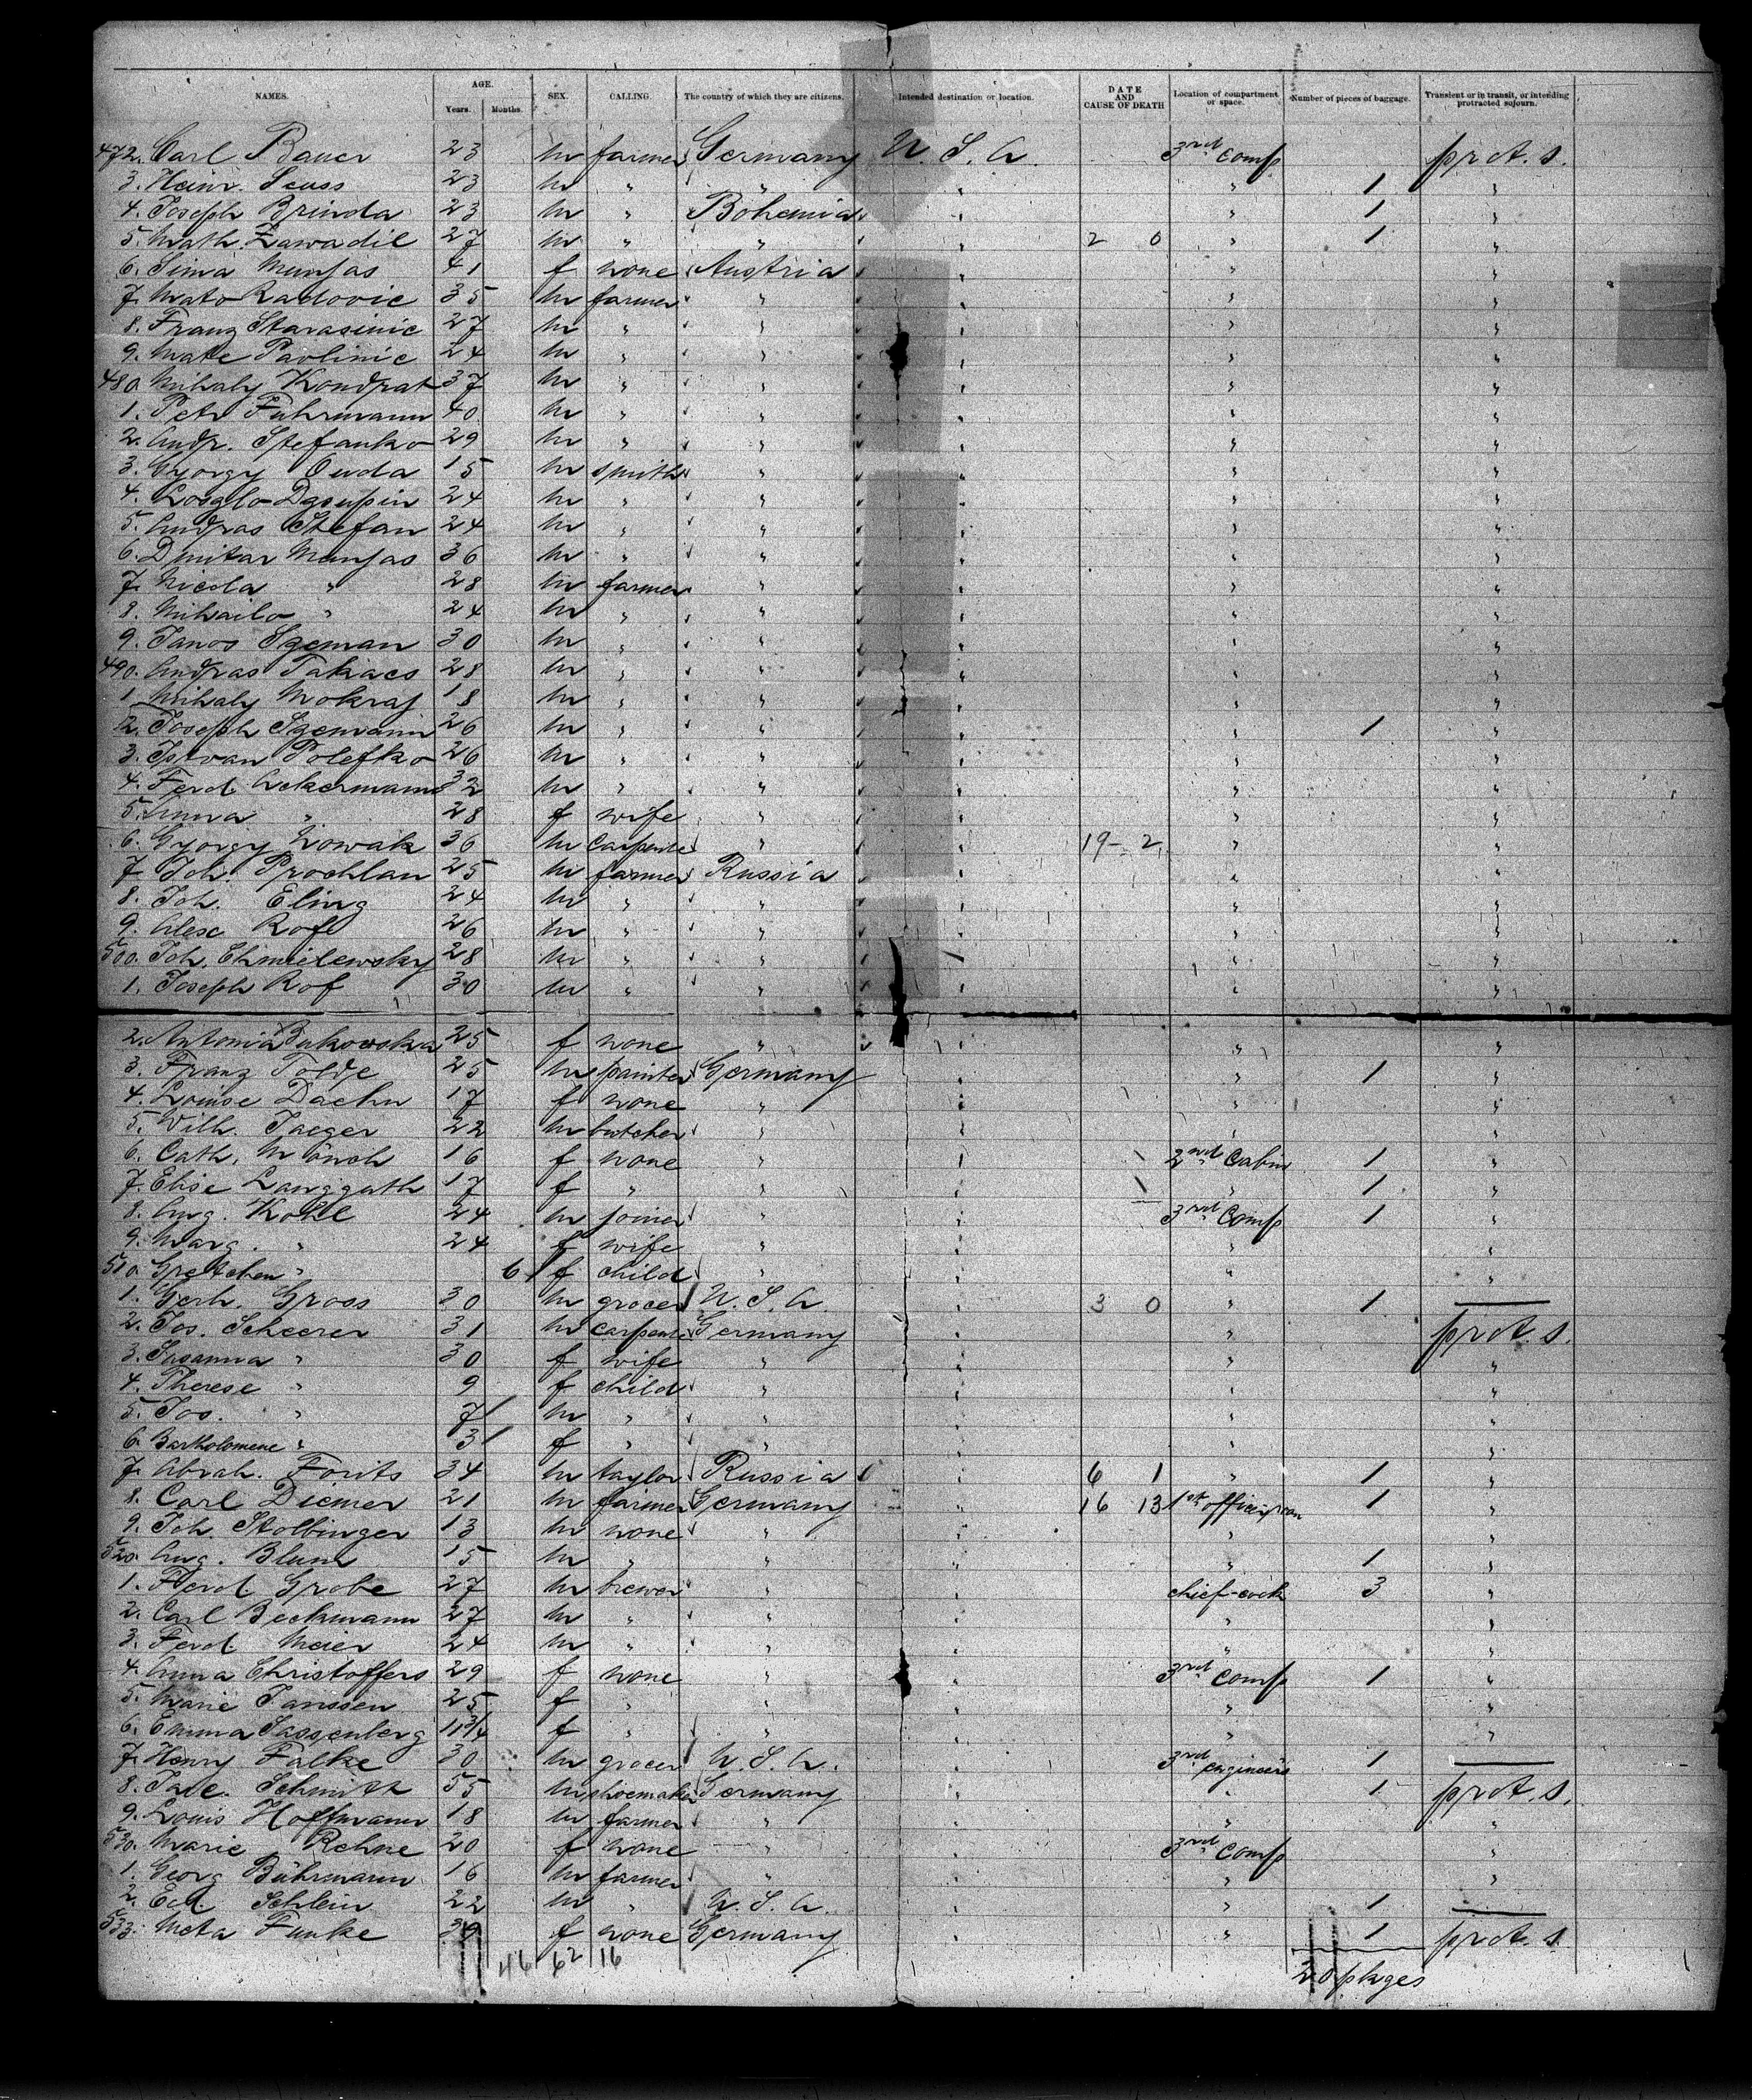 NAMES. AGE. Years. Months. SEX. CALLING. The country of which they are citizens. Intended destination or location. DATE AND CAUSE OF DEATH Location of compartment or space. Number of pieces of baggage. Transient or in transit, or intending protracted sojourn.
472. Carl Bauer 23 m farmer Germany U. S. A. 3rd comp prot. s.
3. Heinr. Seuss 23 m " " " " 1 "
4. Joseph Brinda 23 m " Bohemia " " 1 "
5. Math. Zawadil 27 m " " " 2 0 " 1 "
6. Sima Munjas 41 f none Austria " " "
7. Mato Radovic 35 m farmer " " " "
8. Franz Starasinic 27 m " " " " "
9. Mate Pavlinic 24 m " " " " "
480. Mihaly Kondrat 37 m " " " " "
1. Petr Fuhrmann 40 m " " " " "
2. Andr. Stefanko 29 m " " " " "
3. György Duda 15 m smith " " " "
4. 24 m " " " " "
5. Andras Stefan 24 m " " " " "
6. Dmitar Munjas 36 m " " " " "
7. Nicola " 28 m farmer " " " "
8. Mihailo " 24 m " " " " "
9. Janos Szeman 30 m " " " " "
490. Andras Takacs 28 m " " " " "
1. Mihaly Mokraj 18 m " " " " "
2. Joseph Szemann 26 m " " " " 1 "
3. Istvan Polefko 26 m " " " " "
4. Ferd. Ackermann 32 m " " " " "
5. Anna " 28 f wife " " " "
6. György Nowak 36 m carpenter " " 19- 2 " "
7. Joh. Prochlau 25 m farmer Russia " " "
8. Joh. Eling 24 m " " " " "
9. Alex Rofe 26 m " " " " "
500. Joh. Chmielewsky 28 m " " " " "
1. Joseph Rof 30 m " " " " "
2. Antonia Bukowska 25 f none " " " "
3. Franz Tolde 25 m painter Germany " " 1 "
4. Louise Daehn 17 f none " " " "
5. Wilh. Jaeger 22 m butcher " " " "
6. Cath. Mönch 16 f none " " 2nd Cabin 1 "
7. Elise Langguth 17 f " " " " 1 "
8. Aug. Kohl 24 m joiner " " 3rd Comp 1 "
9. Marg. " 24 f wife " " " "
510. Gretchen " 6 f child " " " "
1. Gerh. Gross 30 m grocer U. S. A. " 3 0 " 1 —
2. Jos. Scheerer 31 m carpenter Germany " " prot. s.
3. Susanna " 30 f wife " " " "
4. Therese " 9 f child " " " "
5. Jos. " 7 m " " " " "
6. Bartholomene " 3 f " " " " "
7. Abrah. Forits 34 m taylor Russia " 6 1 " 1 "
8. Carl Diemer 21 m farmer Germany " 16 13 1st officer 1 "
9. Joh. Stolbinger 13 m none " " " "
520. Aug. Blum 15 m " " " " 1 "
1. Ferd. Grobe 27 m brewer " " chief-cook 3 "
2. Carl Beckmann 27 m " " " " "
3. Ferd. Meier 24 m " " " " "
4. Anna Christoffers 29 f none " " 3rd comp 1 "
5. Marie Janssen 25 f " " " " "
6. Emma Sassenberg 11 3/4 f " " " " "
7. Henry Falke 30 m grocer U. S. A. " 3rd engineers 1 —
8. Schmidt 55 m shoemaker Germany " " 1 prot. s.
9. Louis Hoffmann 18 m farmer " " " "
530. Marie Rehne 20 f none " " 3rd Comp "
1. Georg Bührmann 16 m farmer " " " "
2. Ed Schlein 22 m " U. S. A. " " 1 —
533. Meta Funke f none Germany " " 1 prot. s.
46 62 16 20 pkges